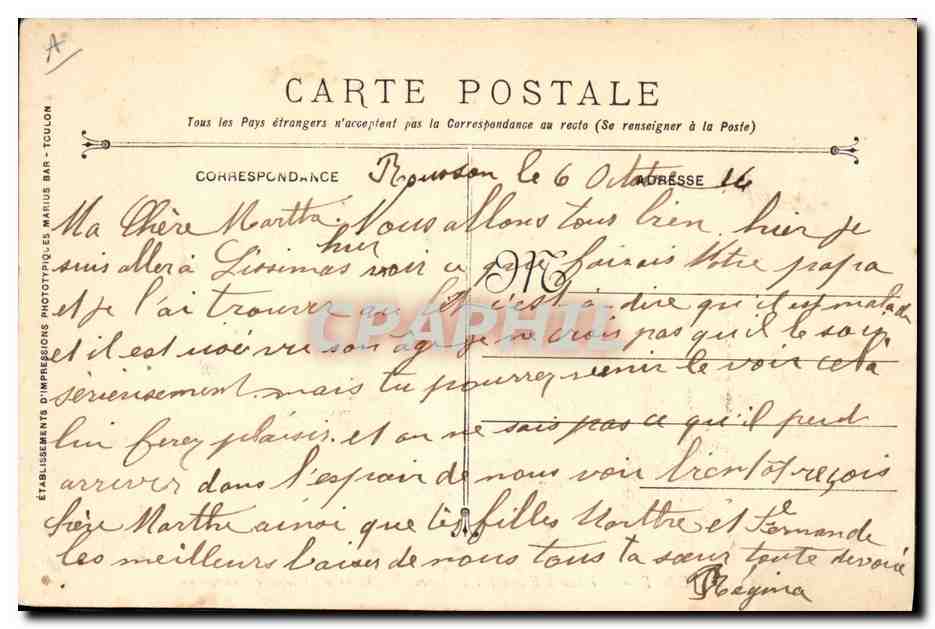 A
CARTE POSTALE
Tous les Pays étrangers n'acceptent pas la Correspondance au recto (Se renseigner à la Poste)
CORRESPONDANCE
ADRESSE
Rousson le 6 Octobre 14
Ma Chère Martha. Nous allons tous bien hier je
suis aller à hier voir ce que faisais Votre papa
et je l'ai trouver au lit c'est à dire qu'il est malade
et il est vrai vu son âge je ne crois pas qu'il le soig
sérieusement mais tu pourrez venir le voir cela
lui ferez plaisir. et on ne sais pas ce qu'il peud
arriver dans l'espoir de nous voir bientôt reçois
chère Marthe ainsi que tes filles Marthe et Fernande
les meilleurs baiser de nous tous ta sœur toute dévoué
Régina
M
CPARHIL
ÉTABLISSEMENTS D'IMPRESSIONS PHOTOTYPIQUES MARIUS BAR - TOULON